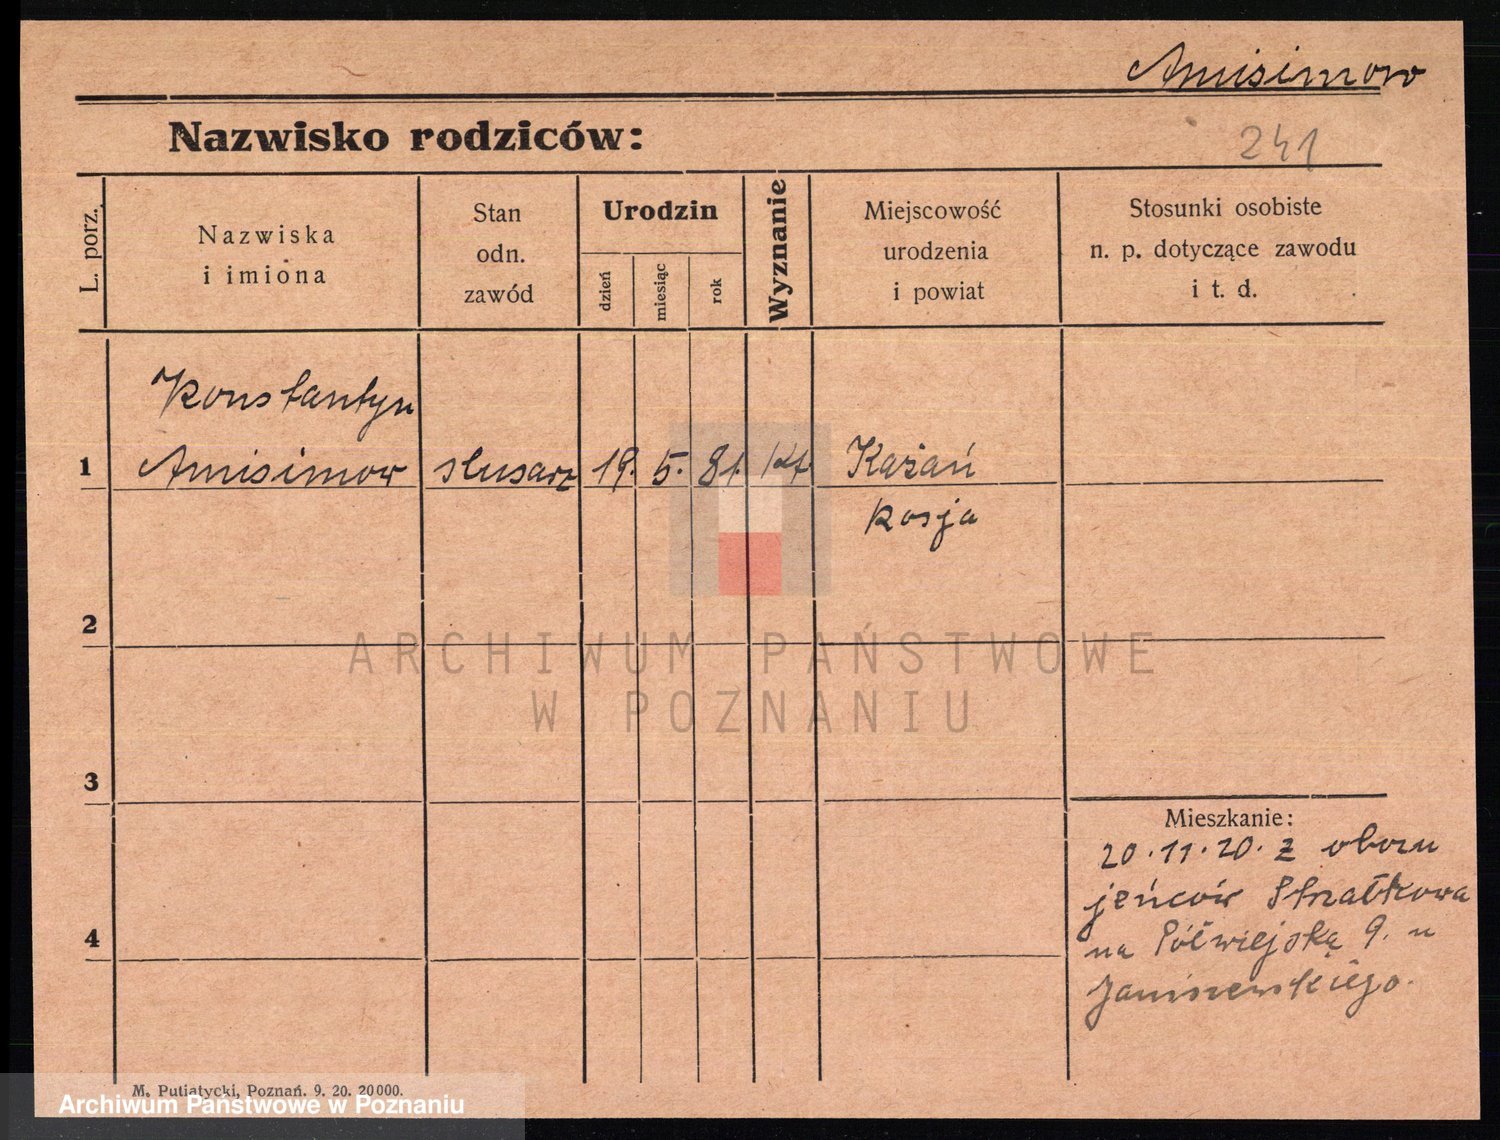 Amisimow
Nazwisko rodziców:
241
L. porz.
Nazwiska
i imiona
Stan
odn.
zawód
Urodzin
dzień
miesiąc
rok
Wyznanie
Miejscowość
urodzenia
i powiat
Stosunki osobiste
n. p. dotyczące zawodu
i t. d.
Konstantyn
1 Amisimow slusarz 19. 5. 81. Kat Każań
Rosja
2
3
4
Mieszkanie:
20.11.20. z obozu
jeńców Strzałkowa
na Półwiejską 9. u
Janiszewskiego.
ARCHIWUM PAŃSTWOWE
W POZNANIU
M. Putiatycki, Poznań. 9. 20. 20000.
Archiwum Państwowe w Poznaniu